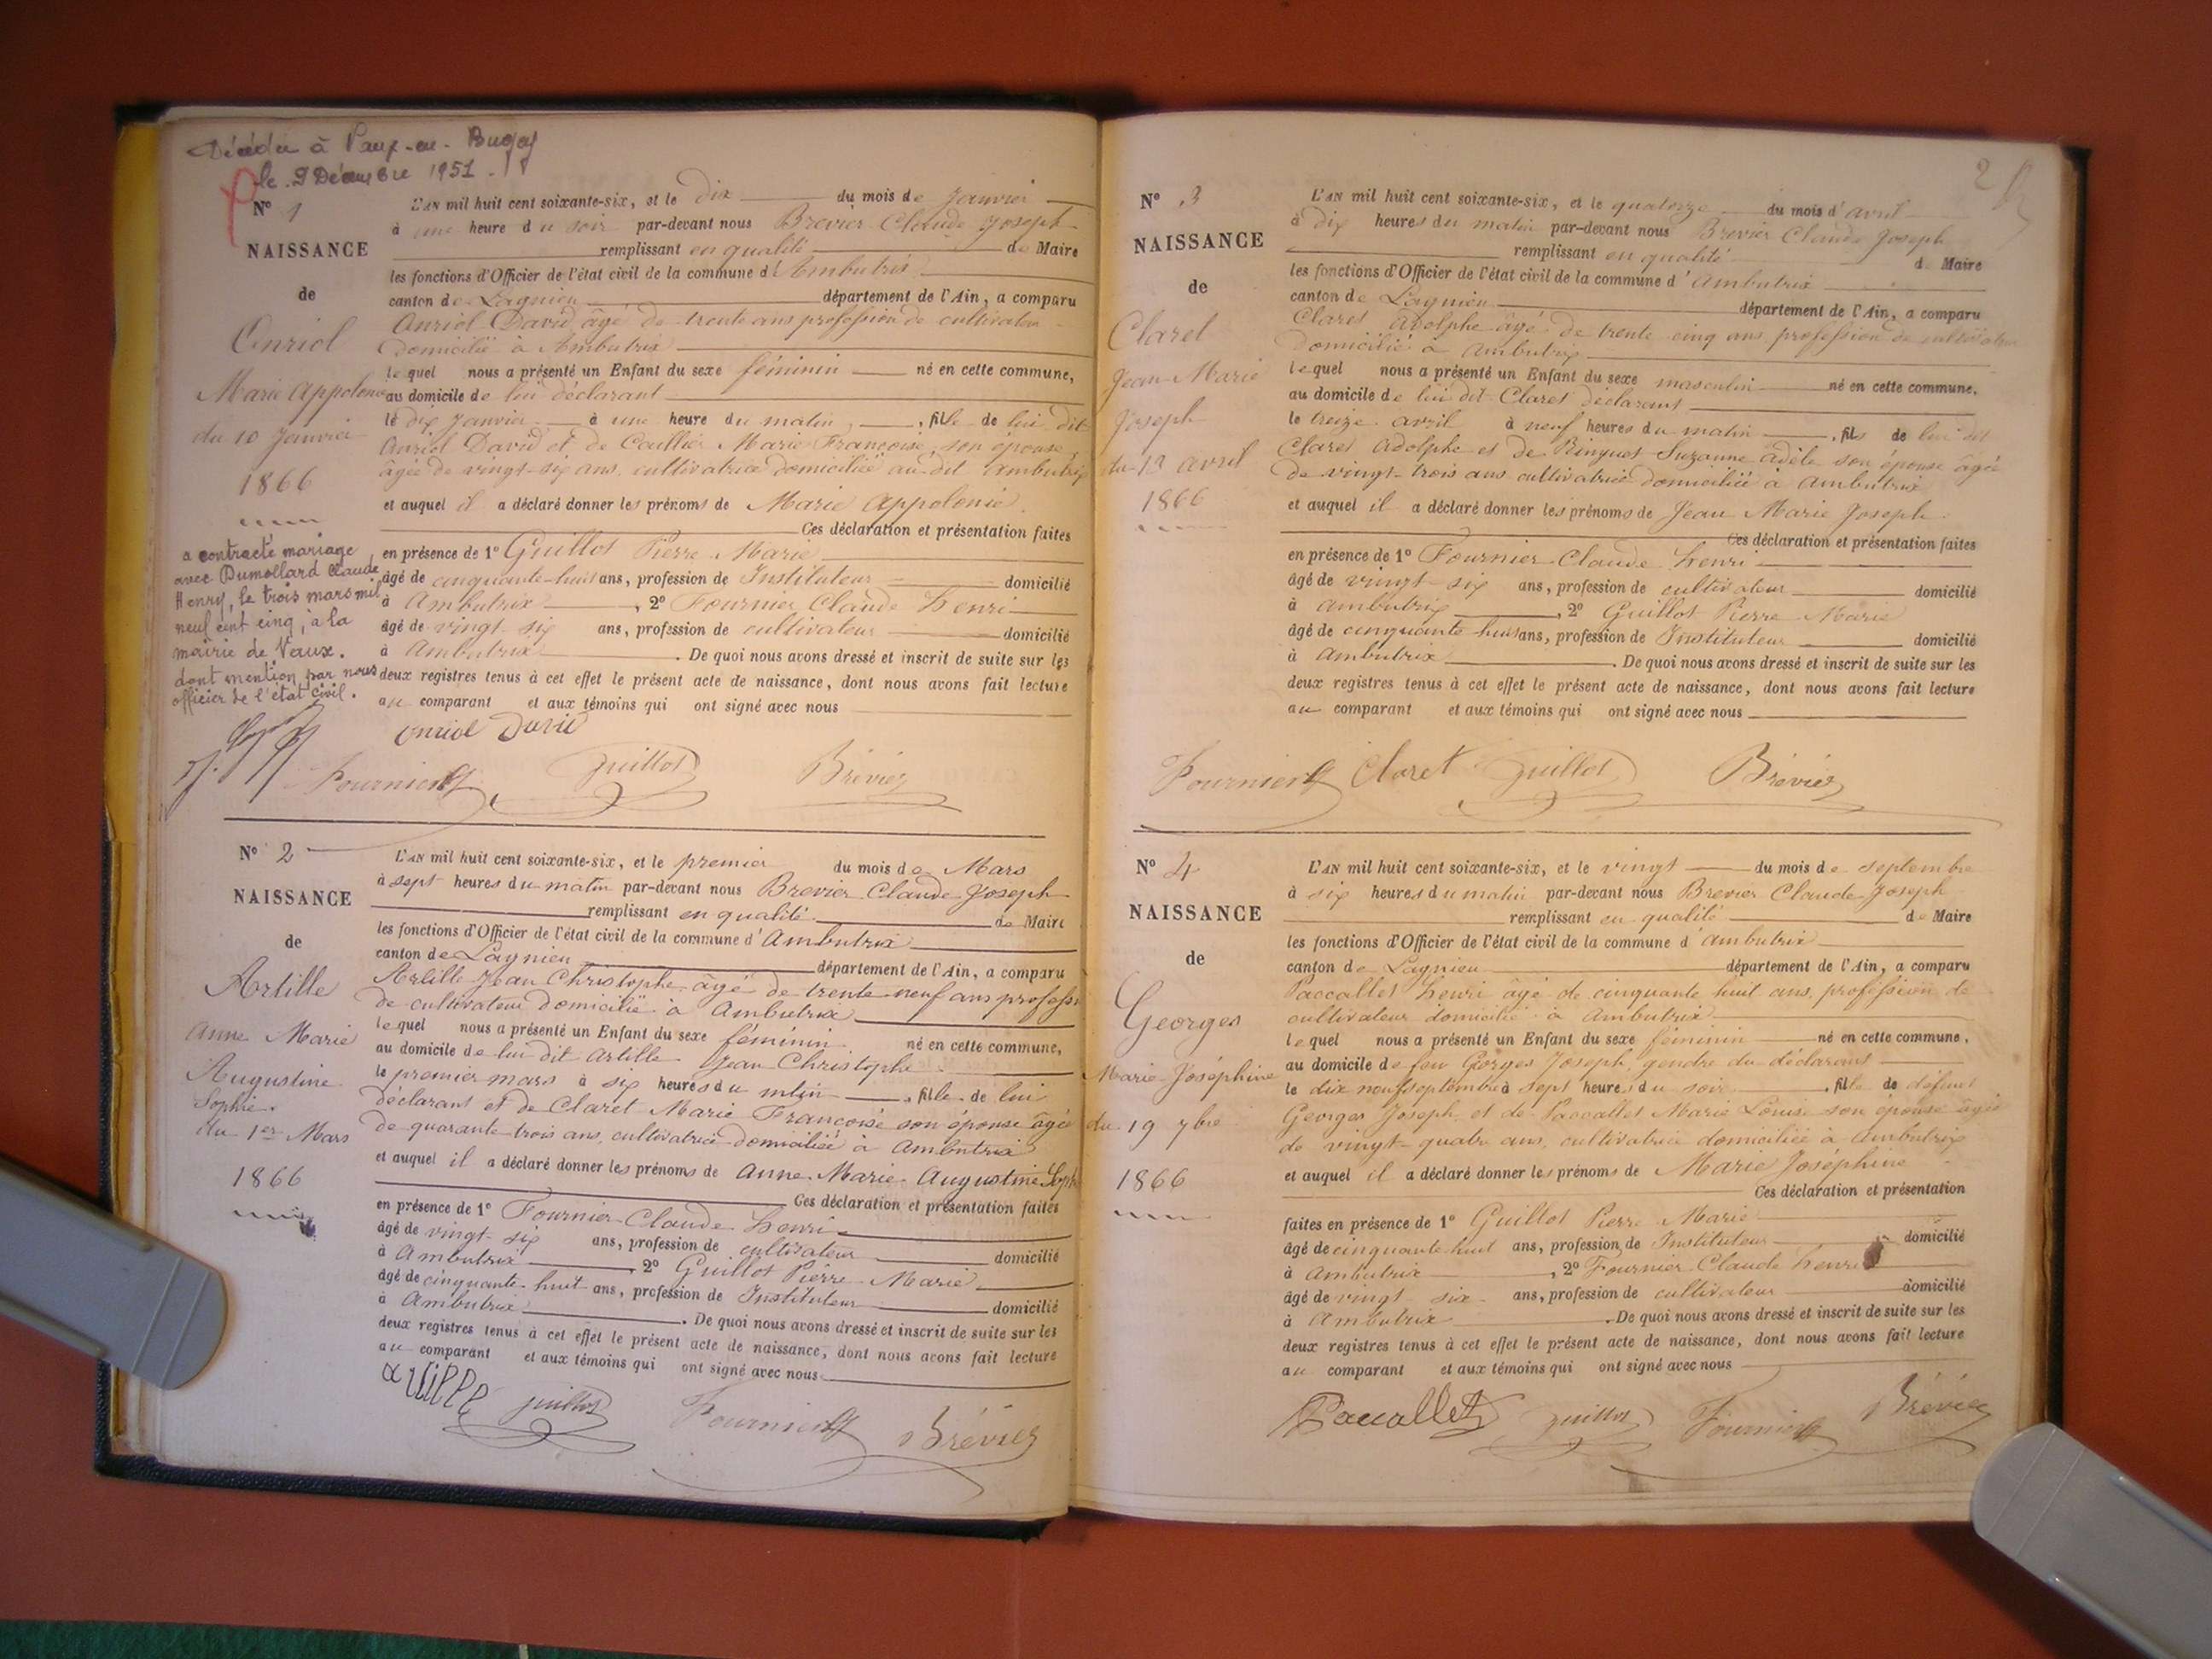 Décédée à Vaux-en-Bugey
le 9 Décembre 1951.
N° 1
NAISSANCE
de
Onriol
Marie Appolonie
du 10 Janvier
1866
a contracté mariage
avec Dumollard Claude
Henry, le trois mars mil
neuf cent cinq, à la
mairie de Vaux.
dont mention par nous
officier de l'état civil.
L'AN mil huit cent soixante-six, et le dix du mois de Janvier
à une heure du soir par-devant nous Brevier Claude Joseph
remplissant en qualité de Maire
les fonctions d'Officier de l'état civil de la commune d'Ambutrix
canton de Lagnieu département de l'Ain, a comparu
Onriol David âgé de trente ans profession de cultivateur
domicilié à Ambutrix
lequel nous a présenté un Enfant du sexe féminin né en cette commune,
au domicile de lui déclarant
le dix Janvier à une heure du matin, fille de lui dit
Onriol David et de Caillier Marie Françoise son épouse,
âgée de vingt-six ans, cultivatrice domiciliée au dit Ambutrix
et auquel il a déclaré donner les prénoms de Marie Appolonie
Ces déclaration et présentation faites
en présence de 1° Guillot Pierre Marie
âgé de cinquante-huit ans, profession de Instituteur domicilié
à Ambutrix, 2° Fournier Claude henri
âgé de vingt-six ans, profession de cultivateur domicilié
à Ambutrix. De quoi nous avons dressé et inscrit de suite sur les
deux registres tenus à cet effet le présent acte de naissance, dont nous avons fait lecture
au comparant et aux témoins qui ont signé avec nous
onriol David
Fournier Guillot Brévier
N° 2
NAISSANCE
de
Artille
Anne Marie
Augustine
Sophie.
du 1er Mars
1866
L'AN mil huit cent soixante-six, et le premier du mois de Mars
à sept heures du matin par-devant nous Brevier Claude Joseph
remplissant en qualité de Maire
les fonctions d'Officier de l'état civil de la commune d'Ambutrix
canton de Lagnieu département de l'Ain, a comparu
Artille Jean Christophe âgé de trente-neuf ans profession
de cultivateur domicilié à Ambutrix
lequel nous a présenté un Enfant du sexe féminin né en cette commune,
au domicile de lui dit Artille Jean Christophe
le premier mars à six heures du mtin, fille de lui
déclarant et de Claret Marie Françoise son épouse âgée
de quarante-trois ans, cultivatrice domiciliée à Ambutrix
et auquel il a déclaré donner les prénoms de Anne-Marie-Augustine Soph
Ces déclaration et présentation faites
en présence de 1° Fournier Claude henri
âgé de vingt-six ans, profession de cultivateur domicilié
à Ambutrix, 2° Guillot Pierre Marie
âgé de cinquante-huit ans, profession de Instituteur domicilié
à Ambutrix. De quoi nous avons dressé et inscrit de suite sur les
deux registres tenus à cet effet le présent acte de naissance, dont nous avons fait lecture
au comparant et aux témoins qui ont signé avec nous
artille Guillot Fournier Brévier
2
N° 3
NAISSANCE
de
Claret
Jean-Marie
Joseph
du 13 avril
1866
L'AN mil huit cent soixante-six, et le quatorze du mois d'avril
à dix heures du matin par-devant nous Brevier Claude Joseph
remplissant en qualité de Maire
les fonctions d'Officier de l'état civil de la commune d'Ambutrix
canton de Lagnieu département de l'Ain, a comparu
Claret Adolphe âgé de trente cinq ans profession de cultivateur
domicilié à Ambutrix
lequel nous a présenté un Enfant du sexe masculin né en cette commune.
au domicile de lui dit Claret déclarant
le treize avril à neuf heures du matin, fils de lui dit
Claret Adolphe et de Ringuet Suzanne Adèle son épouse âgée
de vingt-trois ans cultivatrice domiciliée à Ambutrix
et auquel il a déclaré donner les prénoms de Jean Marie Joseph
Ces déclaration et présentation faites
en présence de 1° Fournier Claude henri
âgé de vingt six ans, profession de cultivateur domicilié
à Ambutrix, 2° Guillot Pierre Marie
âgé de cinquante huit ans, profession de Instituteur domicilié
à Ambutrix. De quoi nous avons dressé et inscrit de suite sur les
deux registres tenus à cet effet le présent acte de naissance, dont nous avons fait lecture
au comparant et aux témoins qui ont signé avec nous
Fournier Claret Guillot Brévier
N° 4
NAISSANCE
de
Georges
Marie Joséphine
du 19 7bre
1866
L'AN mil huit cent soixante-six, et le vingt du mois de septembre
à six heures du matin par-devant nous Brevier Claude Joseph
remplissant en qualité de Maire
les fonctions d'Officier de l'état civil de la commune d'Ambutrix
canton de Lagnieu département de l'Ain, a comparu
Paccallet henri âgé de cinquante huit ans, profession de
cultivateur domicilié à Ambutrix
lequel nous a présenté un Enfant du sexe féminin né en cette commune,
au domicile de feu Gorges Joseph, gendre du déclarant
le dix neuf septembre à sept heures du soir, fille de défunt
Georges Joseph et de Paccallet Marie Louise son épouse âgée
de vingt-quatre ans, cultivatrice domiciliée à Ambutrix
et auquel il a déclaré donner les prénoms de Marie Joséphine
Ces déclaration et présentation
faites en présence de 1° Guillot Pierre Marie
âgé de cinquante-huit ans, profession de Instituteur domicilié
à Ambutrix, 2° Fournier Claude henri
âgé de vingt six ans, profession de cultivateur domicilié
à Ambutrix. De quoi nous avons dressé et inscrit de suite sur les
deux registres tenus à cet effet le présent acte de naissance, dont nous avons fait lecture
au comparant et aux témoins qui ont signé avec nous
Pacallet Guillot Fournier Brévier